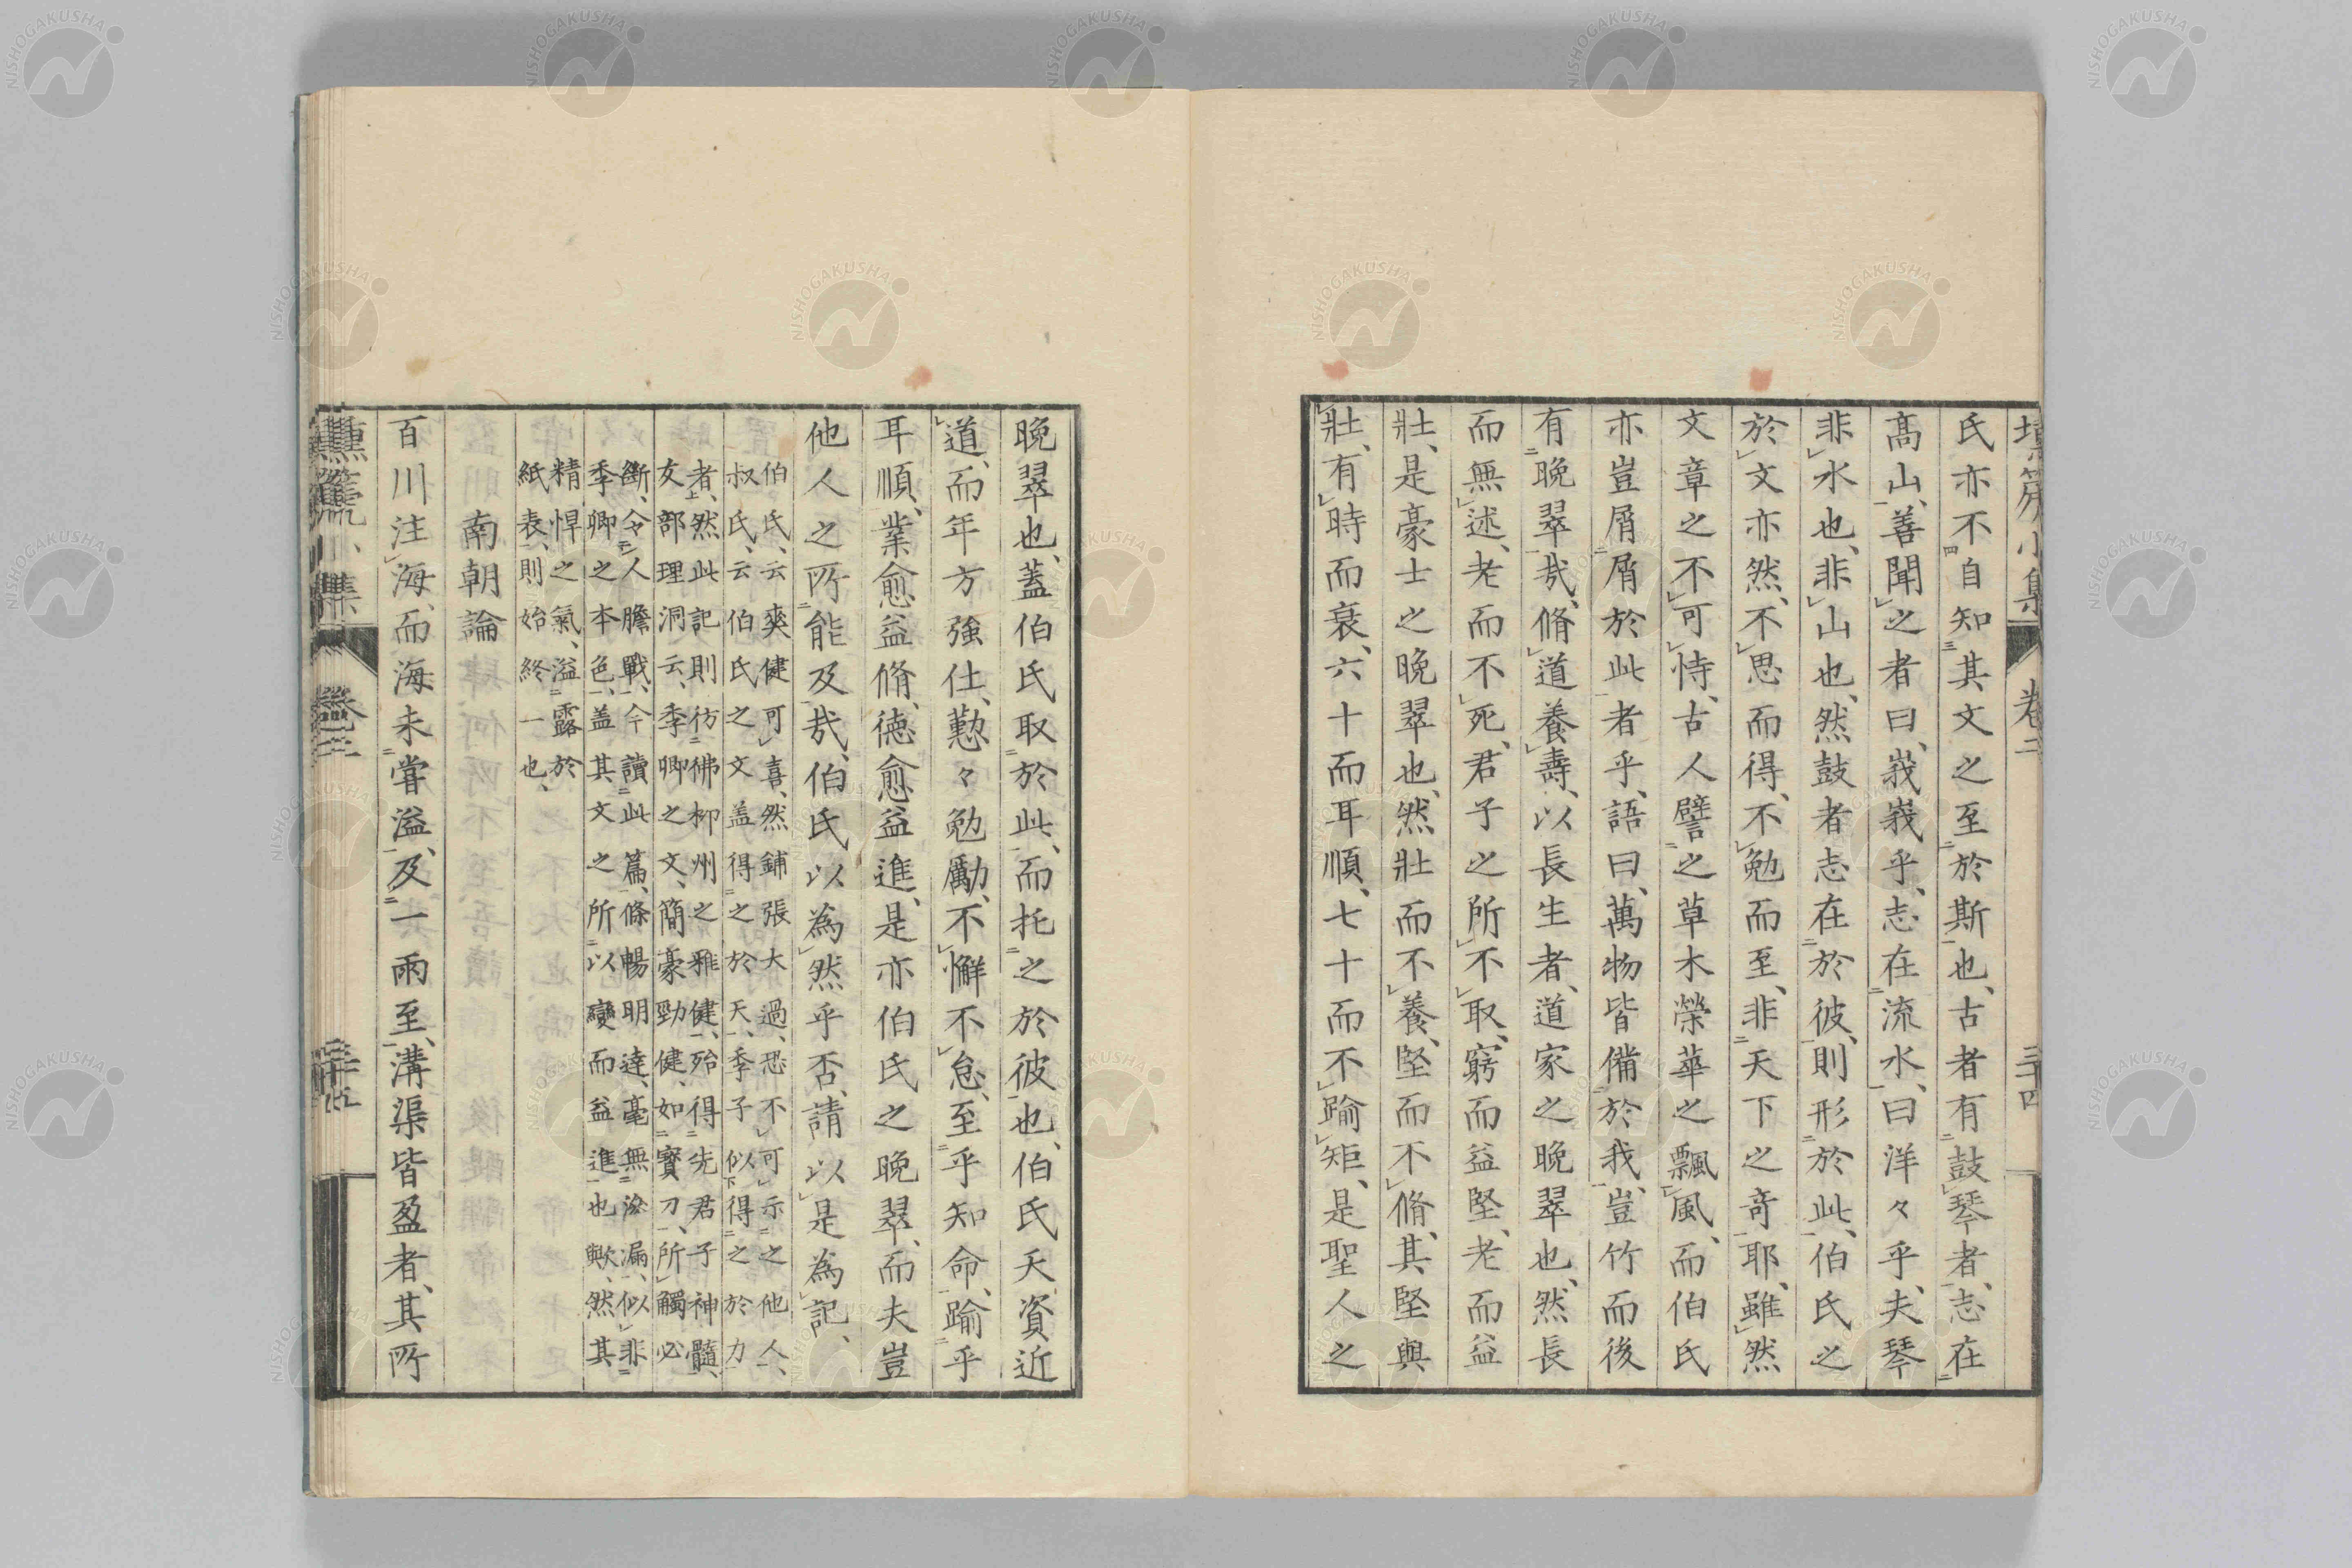 氏亦不自知其文之至於斯也、古者有鼓琴者、志在
高山、善聞之者曰、峩峩乎、志在流水、曰洋々乎、夫琴
非水也、非山也、然鼓者志在於彼、則形於此、伯氏之
於文亦然、不思而得、不勉而至、非天下之奇耶、雖然
文章之不可恃、古人譬之草木榮華之飄風、而伯氏
亦豈屑屑於此者乎、語曰、萬物皆備於我、豈竹而後
有晚翠哉、脩道養壽、以長生者、道家之晚翠也、然長
而無述、老而不死、君子之所不取、窮而益堅、老而益
壯、是豪士之晚翠也、然壯而不養、堅而不脩、其堅與
壯、有時而衰、六十而耳順、七十而不踰矩、是聖人之
卷二
三十四
晚翠也、蓋伯氏取於此、而托之於彼也、伯氏天資近
道、而年方強仕、懃々勉勵、不懈不怠、至乎知命、踰乎
耳順、業愈益脩、德愈益進、是亦伯氏之晚翠、而夫豈
他人之所能及哉、伯氏以為然乎否、請以是為記、
伯氏、云爽健可喜、然鋪張大過、恐不可示之他人、
叔氏、云伯氏之文蓋得之於天、季子似得之於力
者、然此記則彷彿柳州之雅健、殆得先君子神髓、
友部理洞云、季卿之文、簡豪勁健、如寶刀、所觸必
斷、令人膽戰、今讀此篇、條暢明達、毫無滲漏、似非
季卿之本色、蓋其文之所以變而益進也歟、然其
精悍之氣、溢露於
紙表、則始終一也、
南朝論
百川注海、而海未嘗溢、及一雨至、溝渠皆盈者、其所